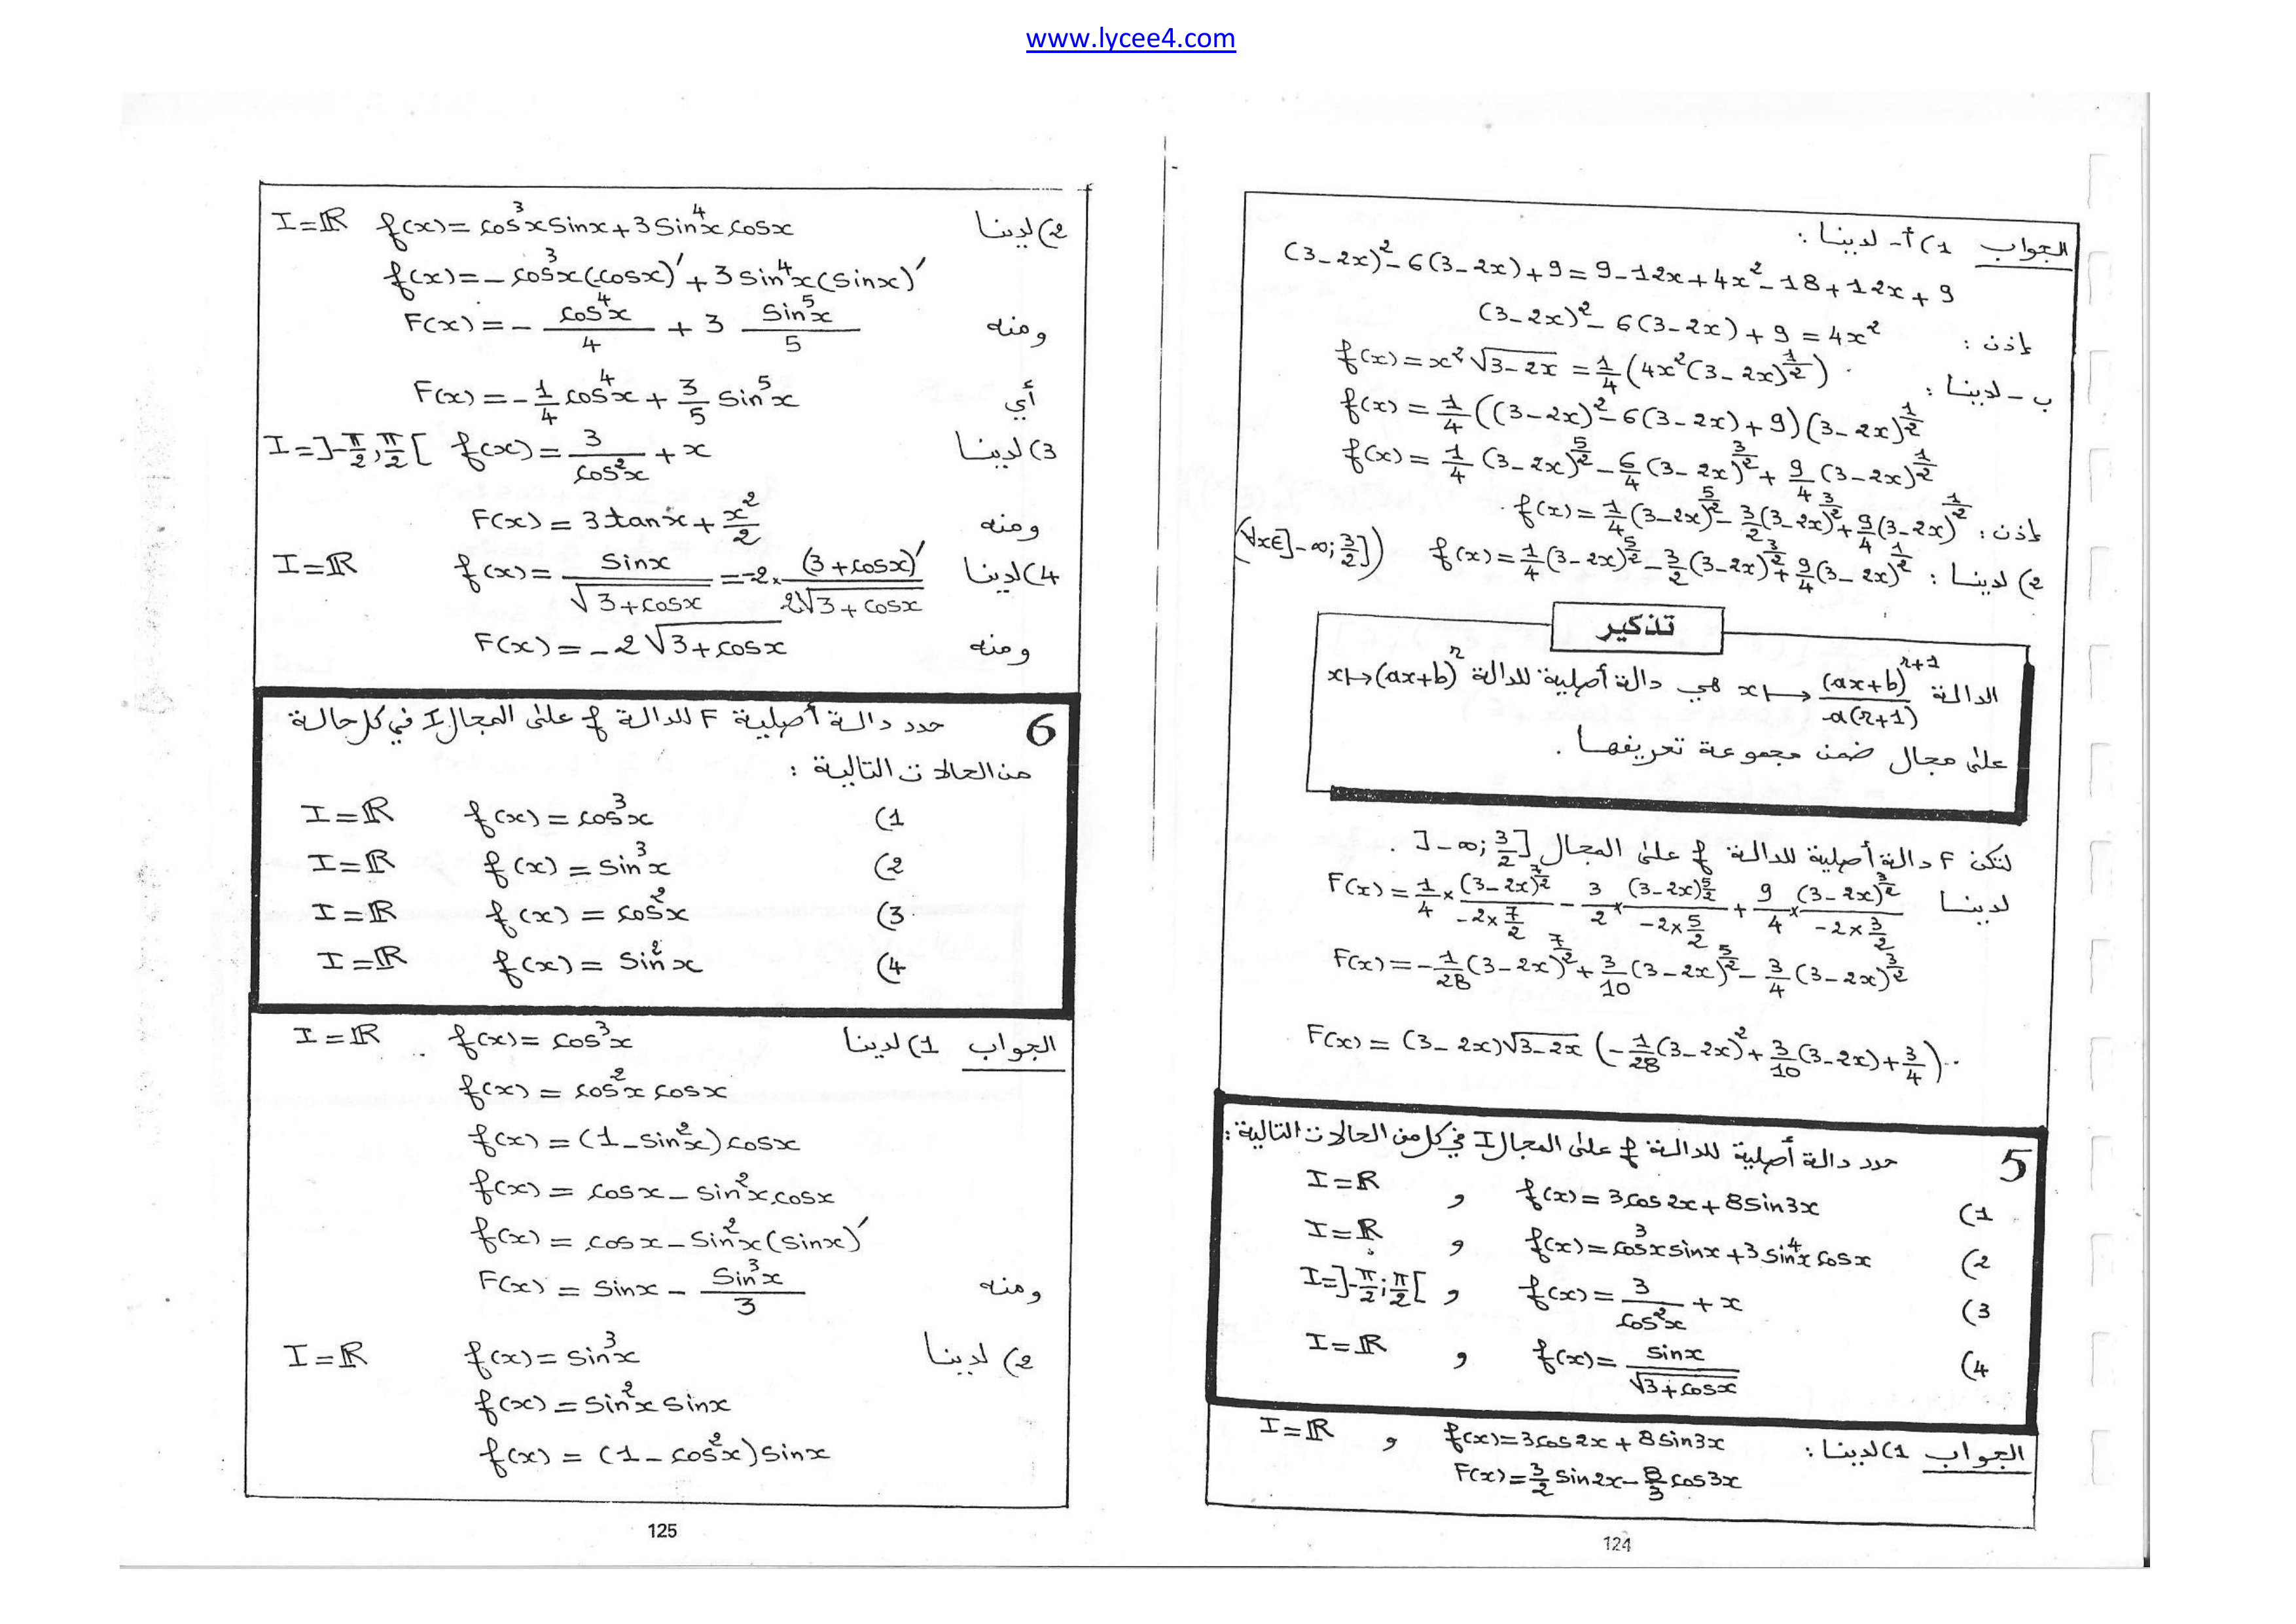 www.lycee4.com
الجواب 1) أ- لدينا :
(3-2x)²-6(3-2x)+9=9-12x+4x²-18+12x+9
إذن : (3-2x)²-6(3-2x)+9=4x²
ب- لدينا : f(x)=x²√(3-2x)=1/4(4x²(3-2x)^(1/2))
f(x)=1/4((3-2x)²-6(3-2x)+9)(3-2x)^(1/2)
f(x)=1/4(3-2x)^(5/2)-6/4(3-2x)^(3/2)+9/4(3-2x)^(1/2)
إذن : f(x)=1/4(3-2x)^(5/2)-3/2(3-2x)^(3/2)+9/4(3-2x)^(1/2)
2) لدينا : f(x)=1/4(3-2x)^(5/2)-3/2(3-2x)^(3/2)+9/4(3-2x)^(1/2) (∀x∈]-∞;3/2])
تذكير
الدالة x↦(ax+b)^(r+1)/(a(r+1)) هي دالة أصلية للدالة x↦(ax+b)^r
على مجال ضمن مجموعة تعريفها .
لتكن F دالة أصلية للدالة f على المجال ]-∞;3/2] .
لدينا F(x)=1/4×(3-2x)^(7/2)/(-2×7/2)-3/2×(3-2x)^(5/2)/(-2×5/2)+9/4×(3-2x)^(3/2)/(-2×3/2)
F(x)=-1/28(3-2x)^(7/2)+3/10(3-2x)^(5/2)-3/4(3-2x)^(3/2)
F(x)=(3-2x)√(3-2x)(-1/28(3-2x)²+3/10(3-2x)+3/4)..
5 حدد دالة أصلية للدالة f على المجال I في كل من الحالات التالية :
1) f(x)=3cos2x+8sin3x , I=ℝ
2) f(x)=cos³x sinx+3sin⁴x cosx , I=ℝ
3) f(x)=3/cos²x+x , I=]-π/2;π/2[
4) f(x)=sinx/√(3+cosx) , I=ℝ
الجواب 1) لدينا : f(x)=3cos2x+8sin3x , I=ℝ
F(x)=3/2 sin2x-8/3 cos3x
124
2) لدينا f(x)=cos³x sinx+3sin⁴x cosx I=ℝ
f(x)=-cos³x(cosx)'+3sin⁴x(sinx)'
ومنه F(x)=-cos⁴x/4+3 sin⁵x/5
أي F(x)=-1/4 cos⁴x+3/5 sin⁵x
3) لدينا f(x)=3/cos²x+x I=]-π/2,π/2[
ومنه F(x)=3tanx+x²/2
4) لدينا f(x)=sinx/√(3+cosx)=-2×(3+cosx)'/(2√(3+cosx)) I=ℝ
ومنه F(x)=-2√(3+cosx)
6 حدد دالة أصلية F للدالة f على المجال I في كل حالة
من الحالات التالية :
1) f(x)=cos³x I=ℝ
2) f(x)=sin³x I=ℝ
3) f(x)=cos²x I=ℝ
4) f(x)=sin²x I=ℝ
الجواب 1) لدينا f(x)=cos³x I=ℝ
f(x)=cos²x cosx
f(x)=(1-sin²x)cosx
f(x)=cosx-sin²x.cosx
f(x)=cosx-sin²x(sinx)'
ومنه F(x)=sinx-sin³x/3
2) لدينا f(x)=sin³x I=ℝ
f(x)=sin²x sinx
f(x)=(1-cos²x)sinx
125